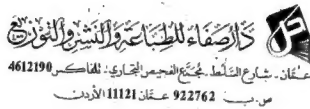 دار صفاء للطباعة والنشر والتوزيع
عمّان ـ شارع السلط ـ مجمع الفحيص التجاري ـ تلفاكس 4612190
ص.ب 922762 عمّان 11121 الأردن